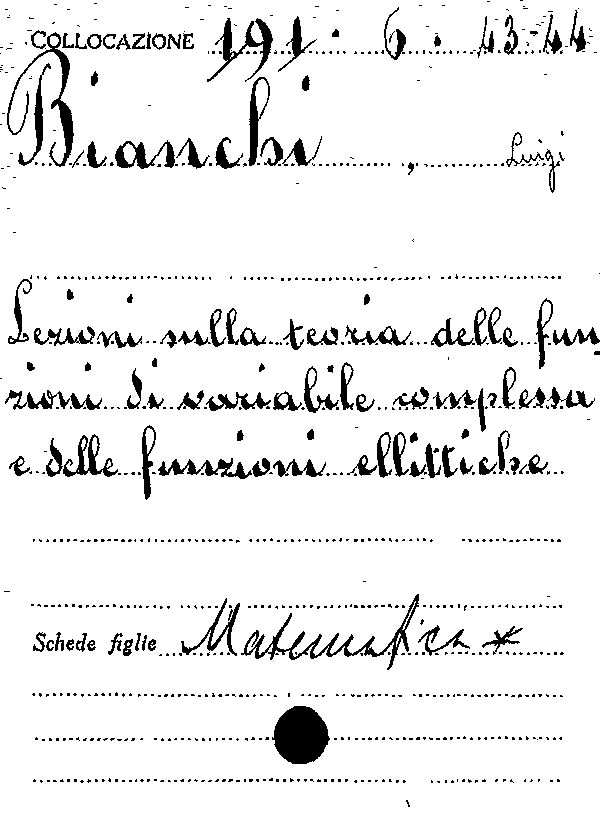 COLLOCAZIONE 191. 6. 43-44
Bianchi, Luigi
Lezioni sulla teoria delle fun
zioni di variabile complessa
e delle funzioni ellittiche
Schede figlie Matematica *